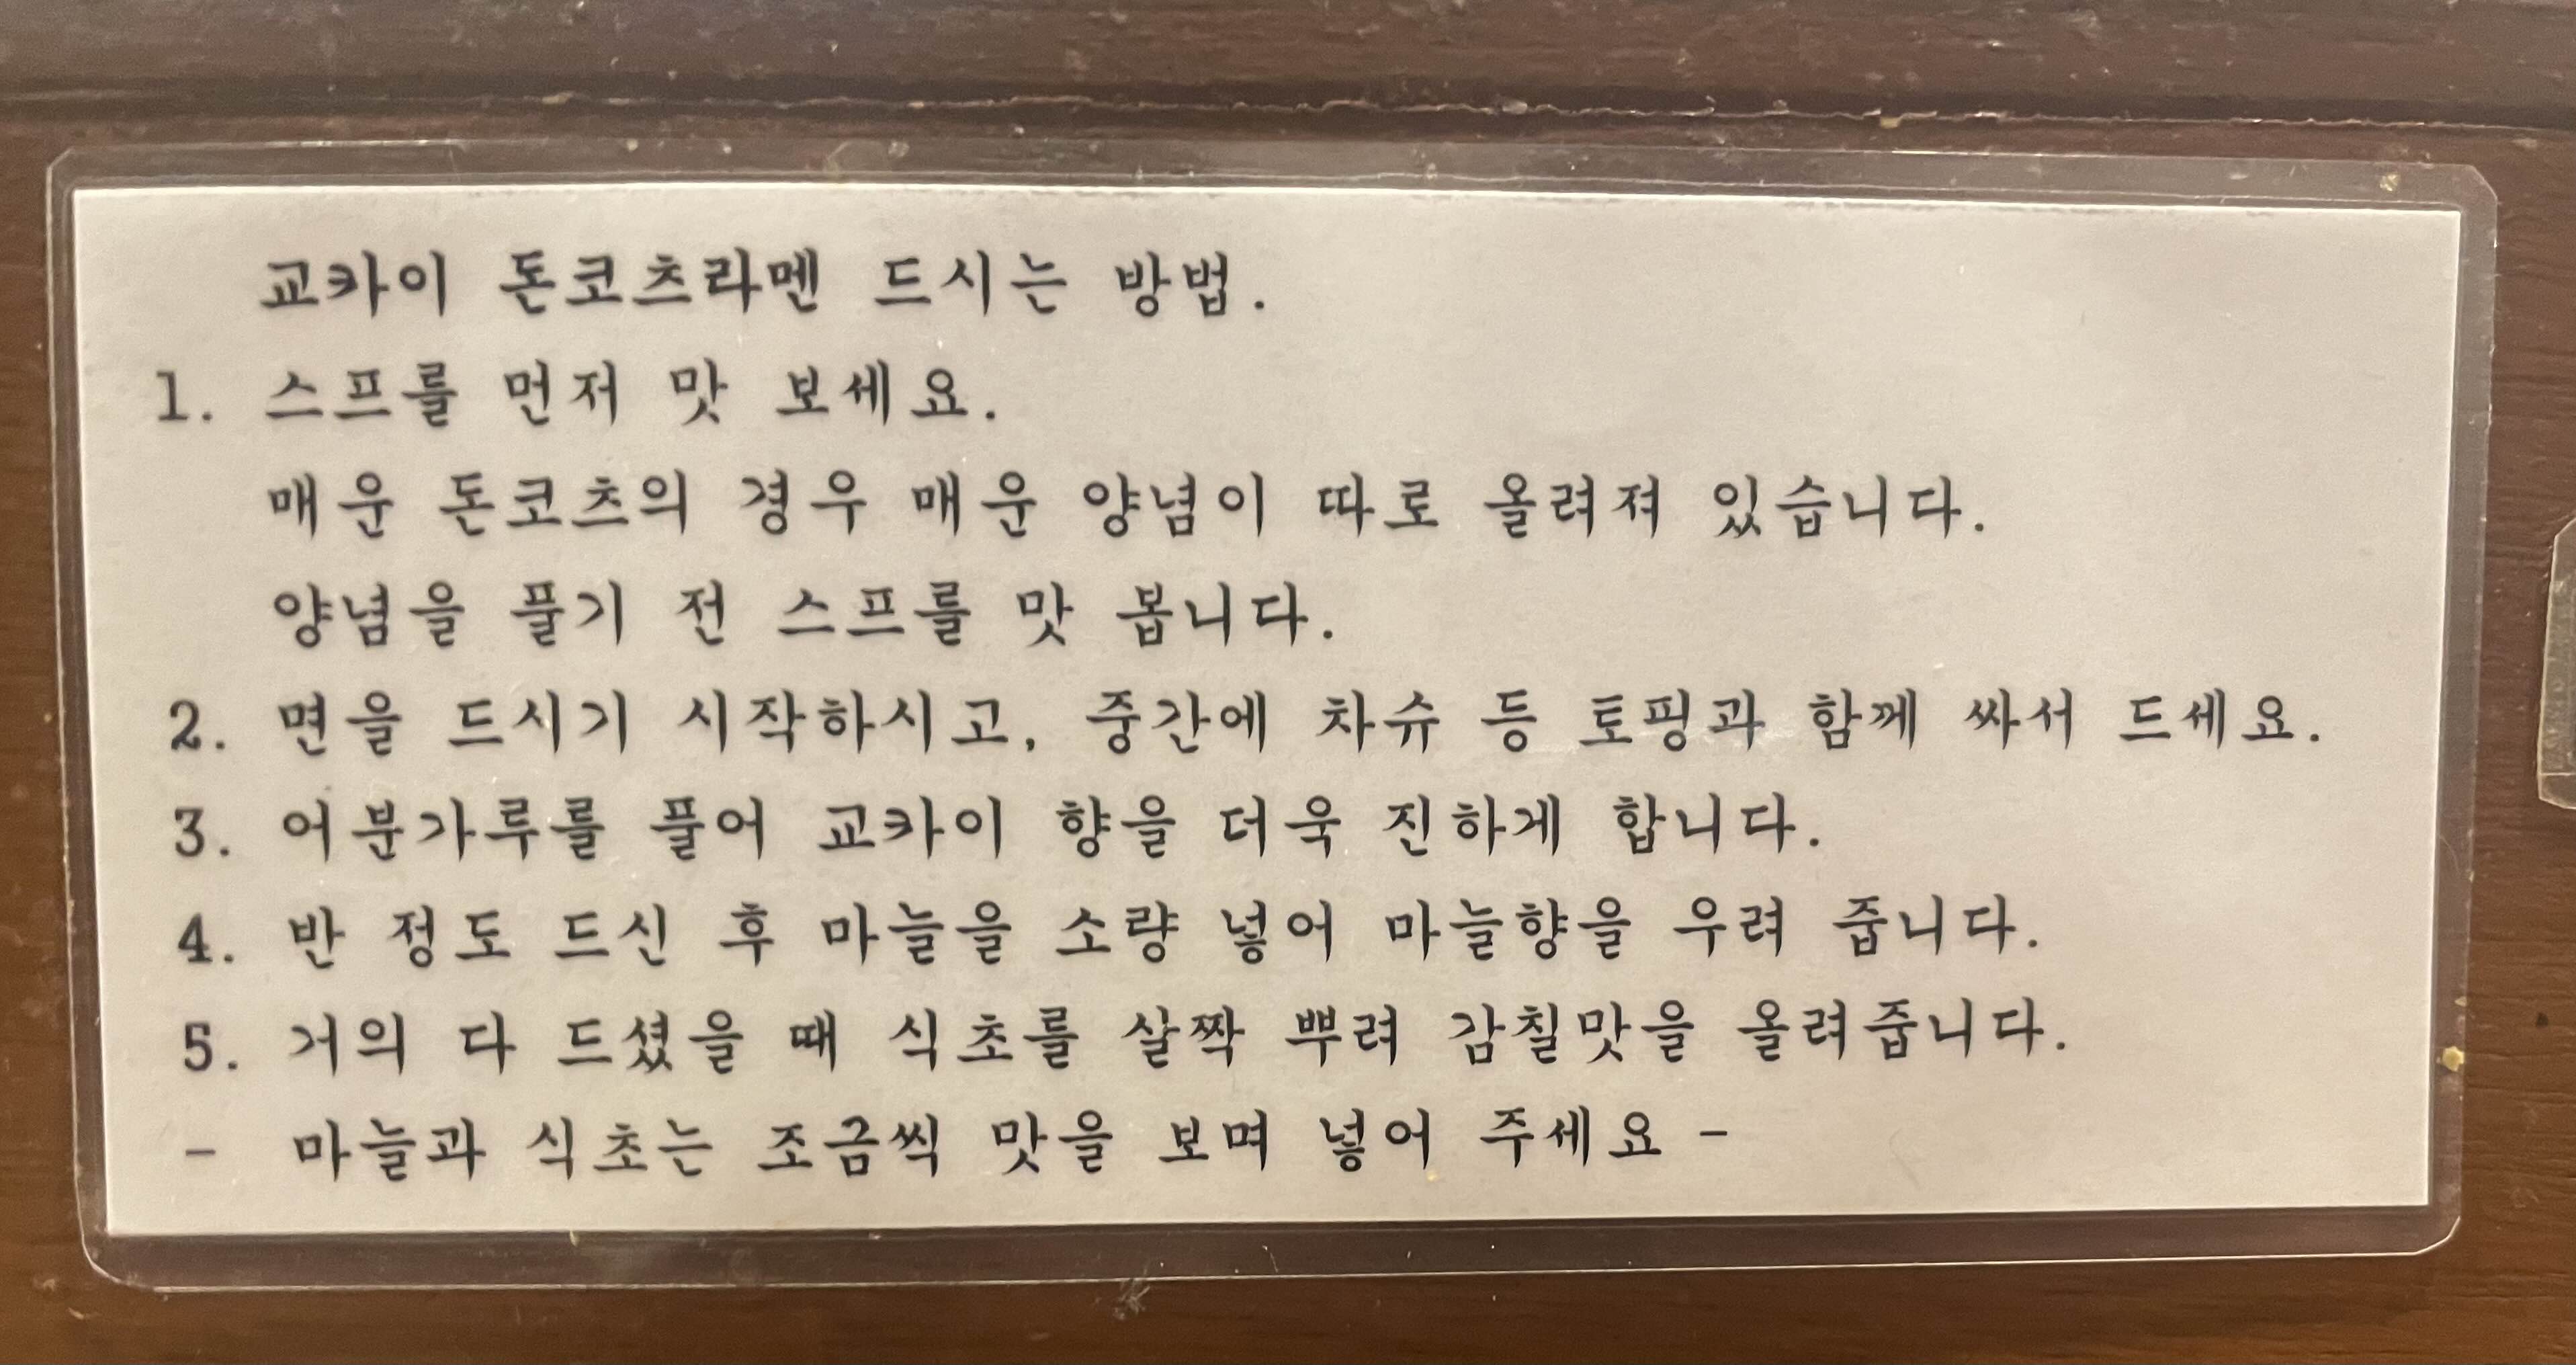 교카이 돈코츠라멘 드시는 방법.
1. 스프를 먼저 맛 보세요.
매운 돈코츠의 경우 매운 양념이 따로 올려져 있습니다.
양념을 풀기 전 스프를 맛 봅니다.
2. 면을 드시기 시작하시고, 중간에 차슈 등 토핑과 함께 싸서 드세요.
3. 어분가루를 풀어 교카이 향을 더욱 진하게 합니다.
4. 반 정도 드신 후 마늘을 소량 넣어 마늘향을 우려 줍니다.
5. 거의 다 드셨을 때 식초를 살짝 뿌려 감칠맛을 올려줍니다.
- 마늘과 식초는 조금씩 맛을 보며 넣어 주세요 -